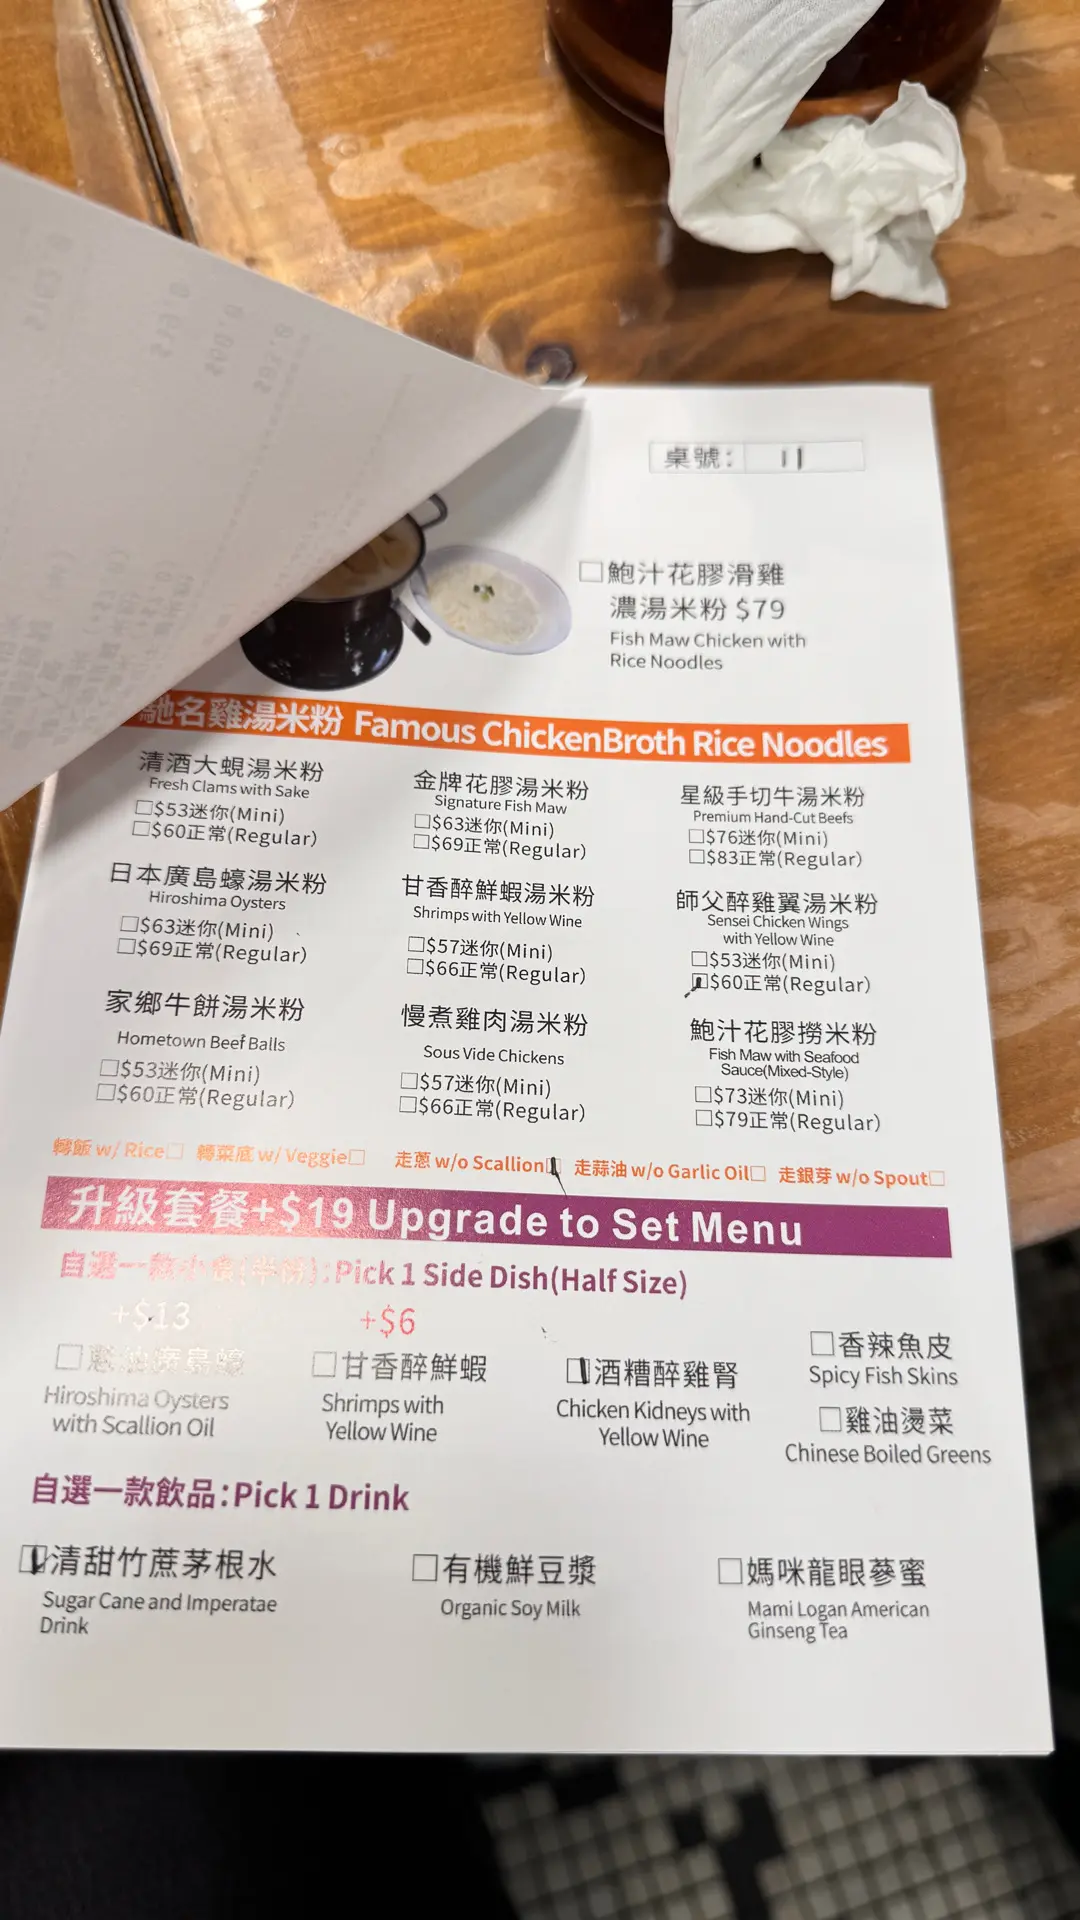 桌號： 11
鮑汁花膠滑雞
濃湯米粉 $79
Fish Maw Chicken with
Rice Noodles
馳名雞湯米粉 Famous ChickenBroth Rice Noodles
清酒大蜆湯米粉
Fresh Clams with Sake
$53迷你(Mini)
$60正常(Regular)
金牌花膠湯米粉
Signature Fish Maw
$63迷你(Mini)
$69正常(Regular)
星級手切牛湯米粉
Premium Hand-Cut Beefs
$76迷你(Mini)
$83正常(Regular)
日本廣島蠔湯米粉
Hiroshima Oysters
$63迷你(Mini)
$69正常(Regular)
甘香醉鮮蝦湯米粉
Shrimps with Yellow Wine
$57迷你(Mini)
$66正常(Regular)
師父醉雞翼湯米粉
Sensei Chicken Wings
with Yellow Wine
$53迷你(Mini)
$60正常(Regular)
家鄉牛餅湯米粉
Hometown Beef Balls
$53迷你(Mini)
$60正常(Regular)
慢煮雞肉湯米粉
Sous Vide Chickens
$57迷你(Mini)
$66正常(Regular)
鮑汁花膠撈米粉
Fish Maw with Seafood
Sauce(Mixed-Style)
$73迷你(Mini)
$79正常(Regular)
轉飯 w/ Rice 轉菜底 w/ Veggie 走蔥 w/o Scallion 走蒜油 w/o Garlic Oil 走銀芽 w/o Spout
升級套餐+$19 Upgrade to Set Menu
自選一款小食(半份):Pick 1 Side Dish(Half Size)
+$13
蔥油廣島蠔
Hiroshima Oysters
with Scallion Oil
+$6
甘香醉鮮蝦
Shrimps with
Yellow Wine
酒糟醉雞腎
Chicken Kidneys with
Yellow Wine
香辣魚皮
Spicy Fish Skins
雞油燙菜
Chinese Boiled Greens
自選一款飲品:Pick 1 Drink
清甜竹蔗茅根水
Sugar Cane and Imperatae
Drink
有機鮮豆漿
Organic Soy Milk
媽咪龍眼蔘蜜
Mami Logan American
Ginseng Tea